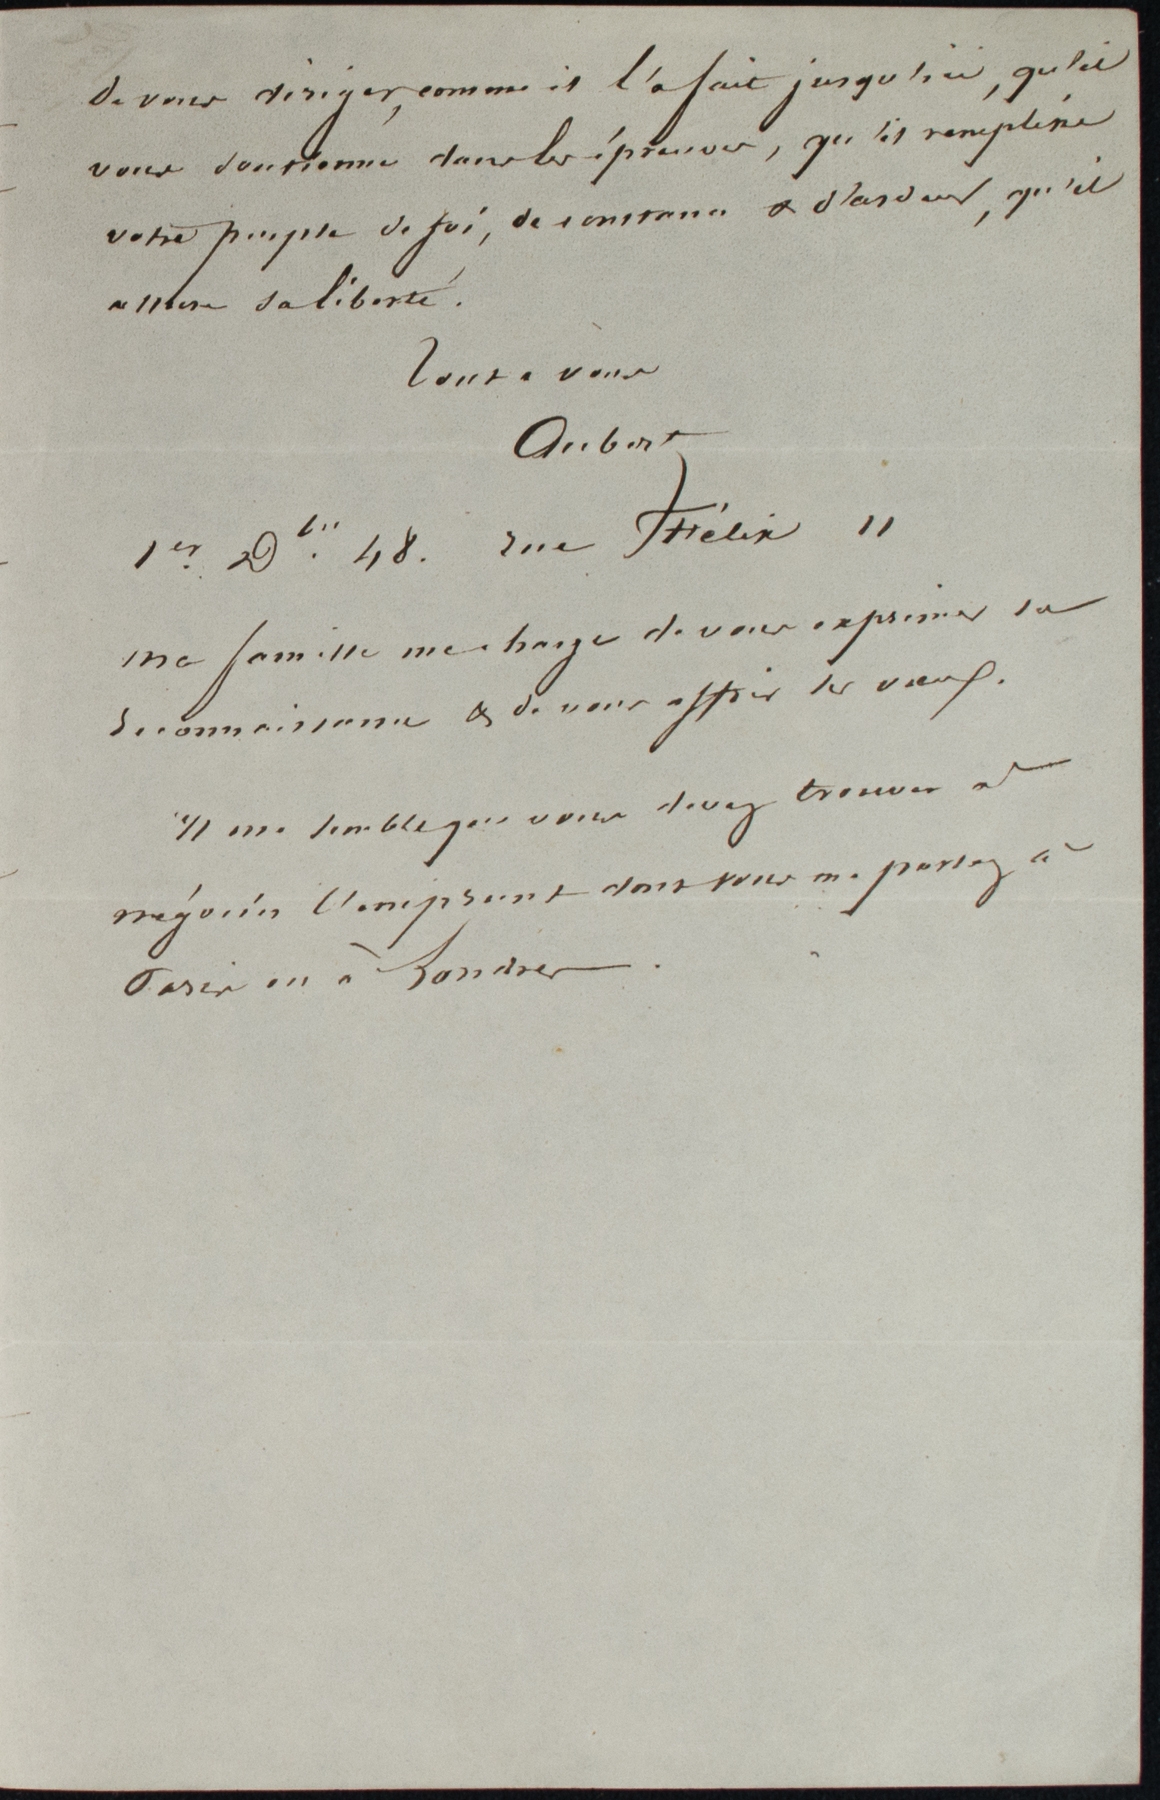 de vous diriger, comme il l'a fait jusqu'ici, qu'il
vous soutienne dans les épreuves, qu'il remplisse
votre peuple de foi, de constance & d'ardeur, qu'il
assure sa liberté.
Tout à vous
Aubert
1er Dbre 48. rue St Félix 11
Ma famille me charge de vous exprimer sa
reconnaissance & de vous offrir ses vœux.
Il me semble que vous devez trouver à
négocier l'emprunt dont vous me parlez à
Paris ou à Londres.